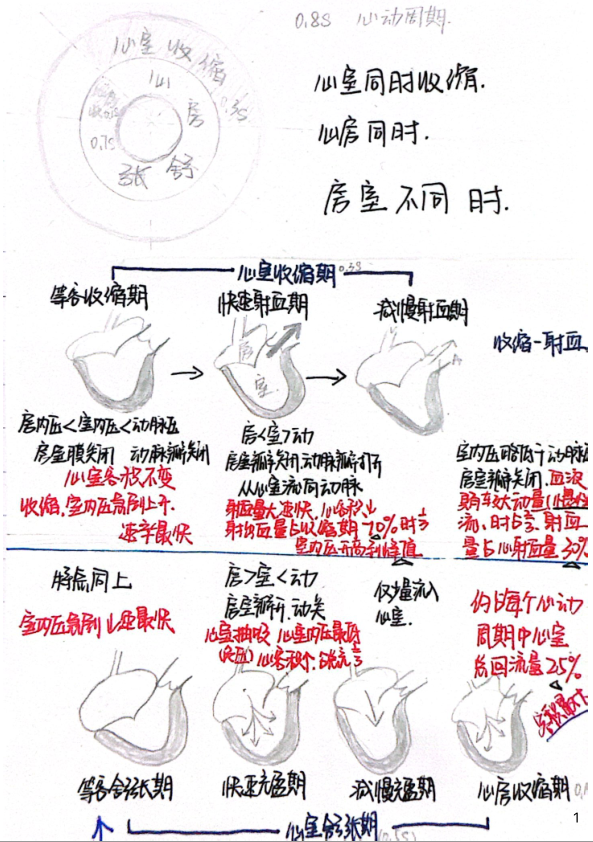 0.8S 心动周期.
心室收缩
心房
0.3s
0.7s
舒张
心室同时收缩.
心房同时.
房室不同时.
心室收缩期 0.3s
等容收缩期
快速射血期
减慢射血期
收缩-射血
房
室
房内压<室内压<动脉压
房室膜关闭 动脉瓣关闭
心室容积不变
收缩,室内压急剧上升.
速率最快
房<室>动
房室瓣关闭,动脉瓣打开
从心室流向动脉
射血量大速快,心容积↓
射出血量占收缩期70%,时⅓
室内压升高到峰值
室内压略低于动脉
房室瓣关闭.血液
射血量占心射血量30%
特点同上
室内压急剧↓速最快
房>室<动
房室瓣开.动关
心室抽吸 心室内压最低
(负压)
仅少量流入
心室.
仅占每个心动
周期中心室
总回流量25%
等容舒张期
快速充盈期
减慢充盈期
心房收缩期
心室舒张期
1